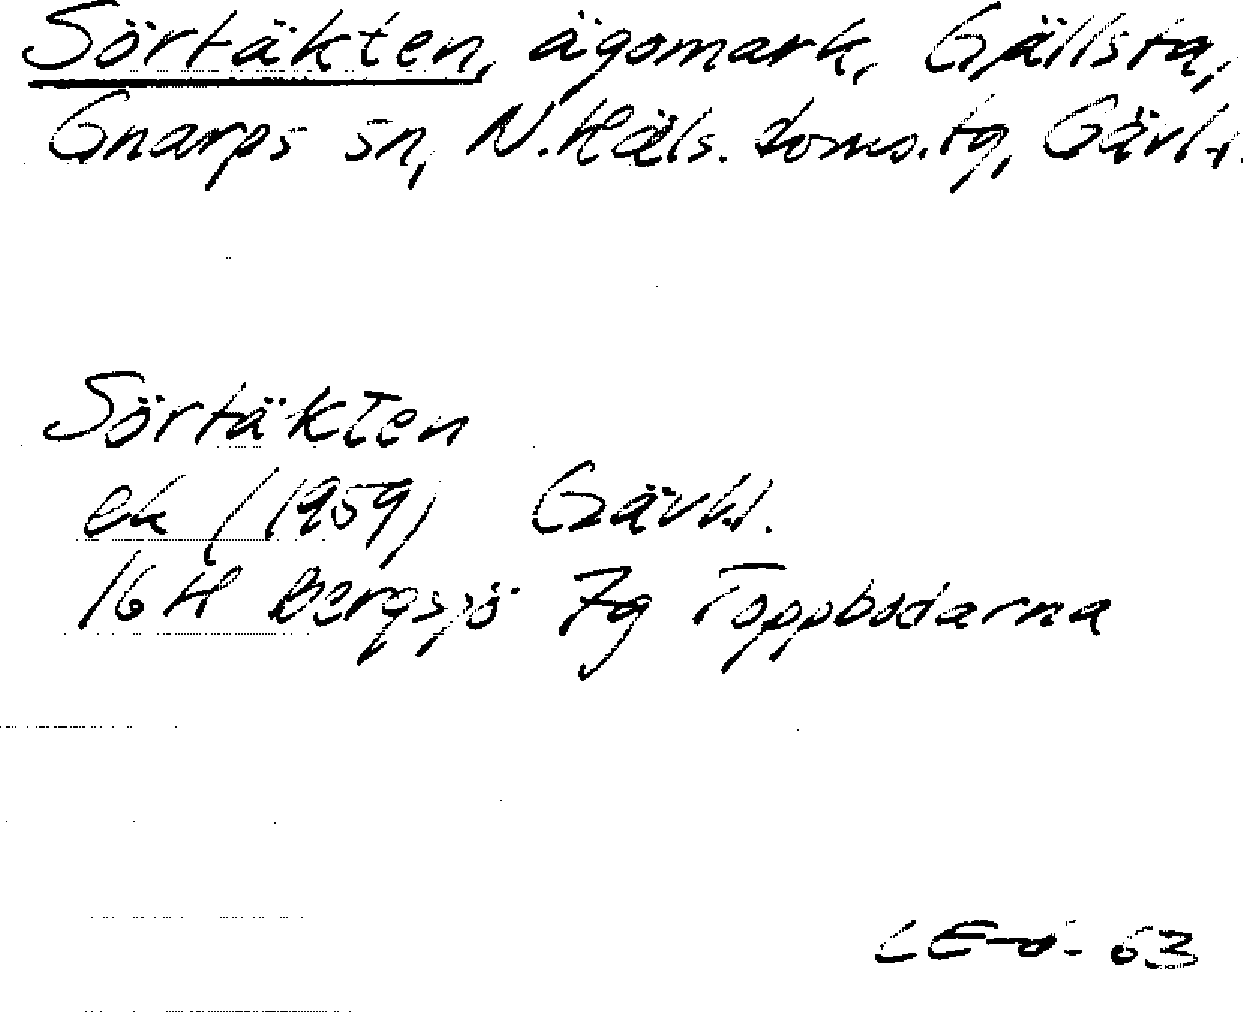 Sörtäkten, ägomark, Gällsta,
Gnarps sn, N.Häls. doms.tg, Gävl.
Sörtäkten
ek (1959) Gävl.
16H Bergsjö 7g Toppbodarna
63